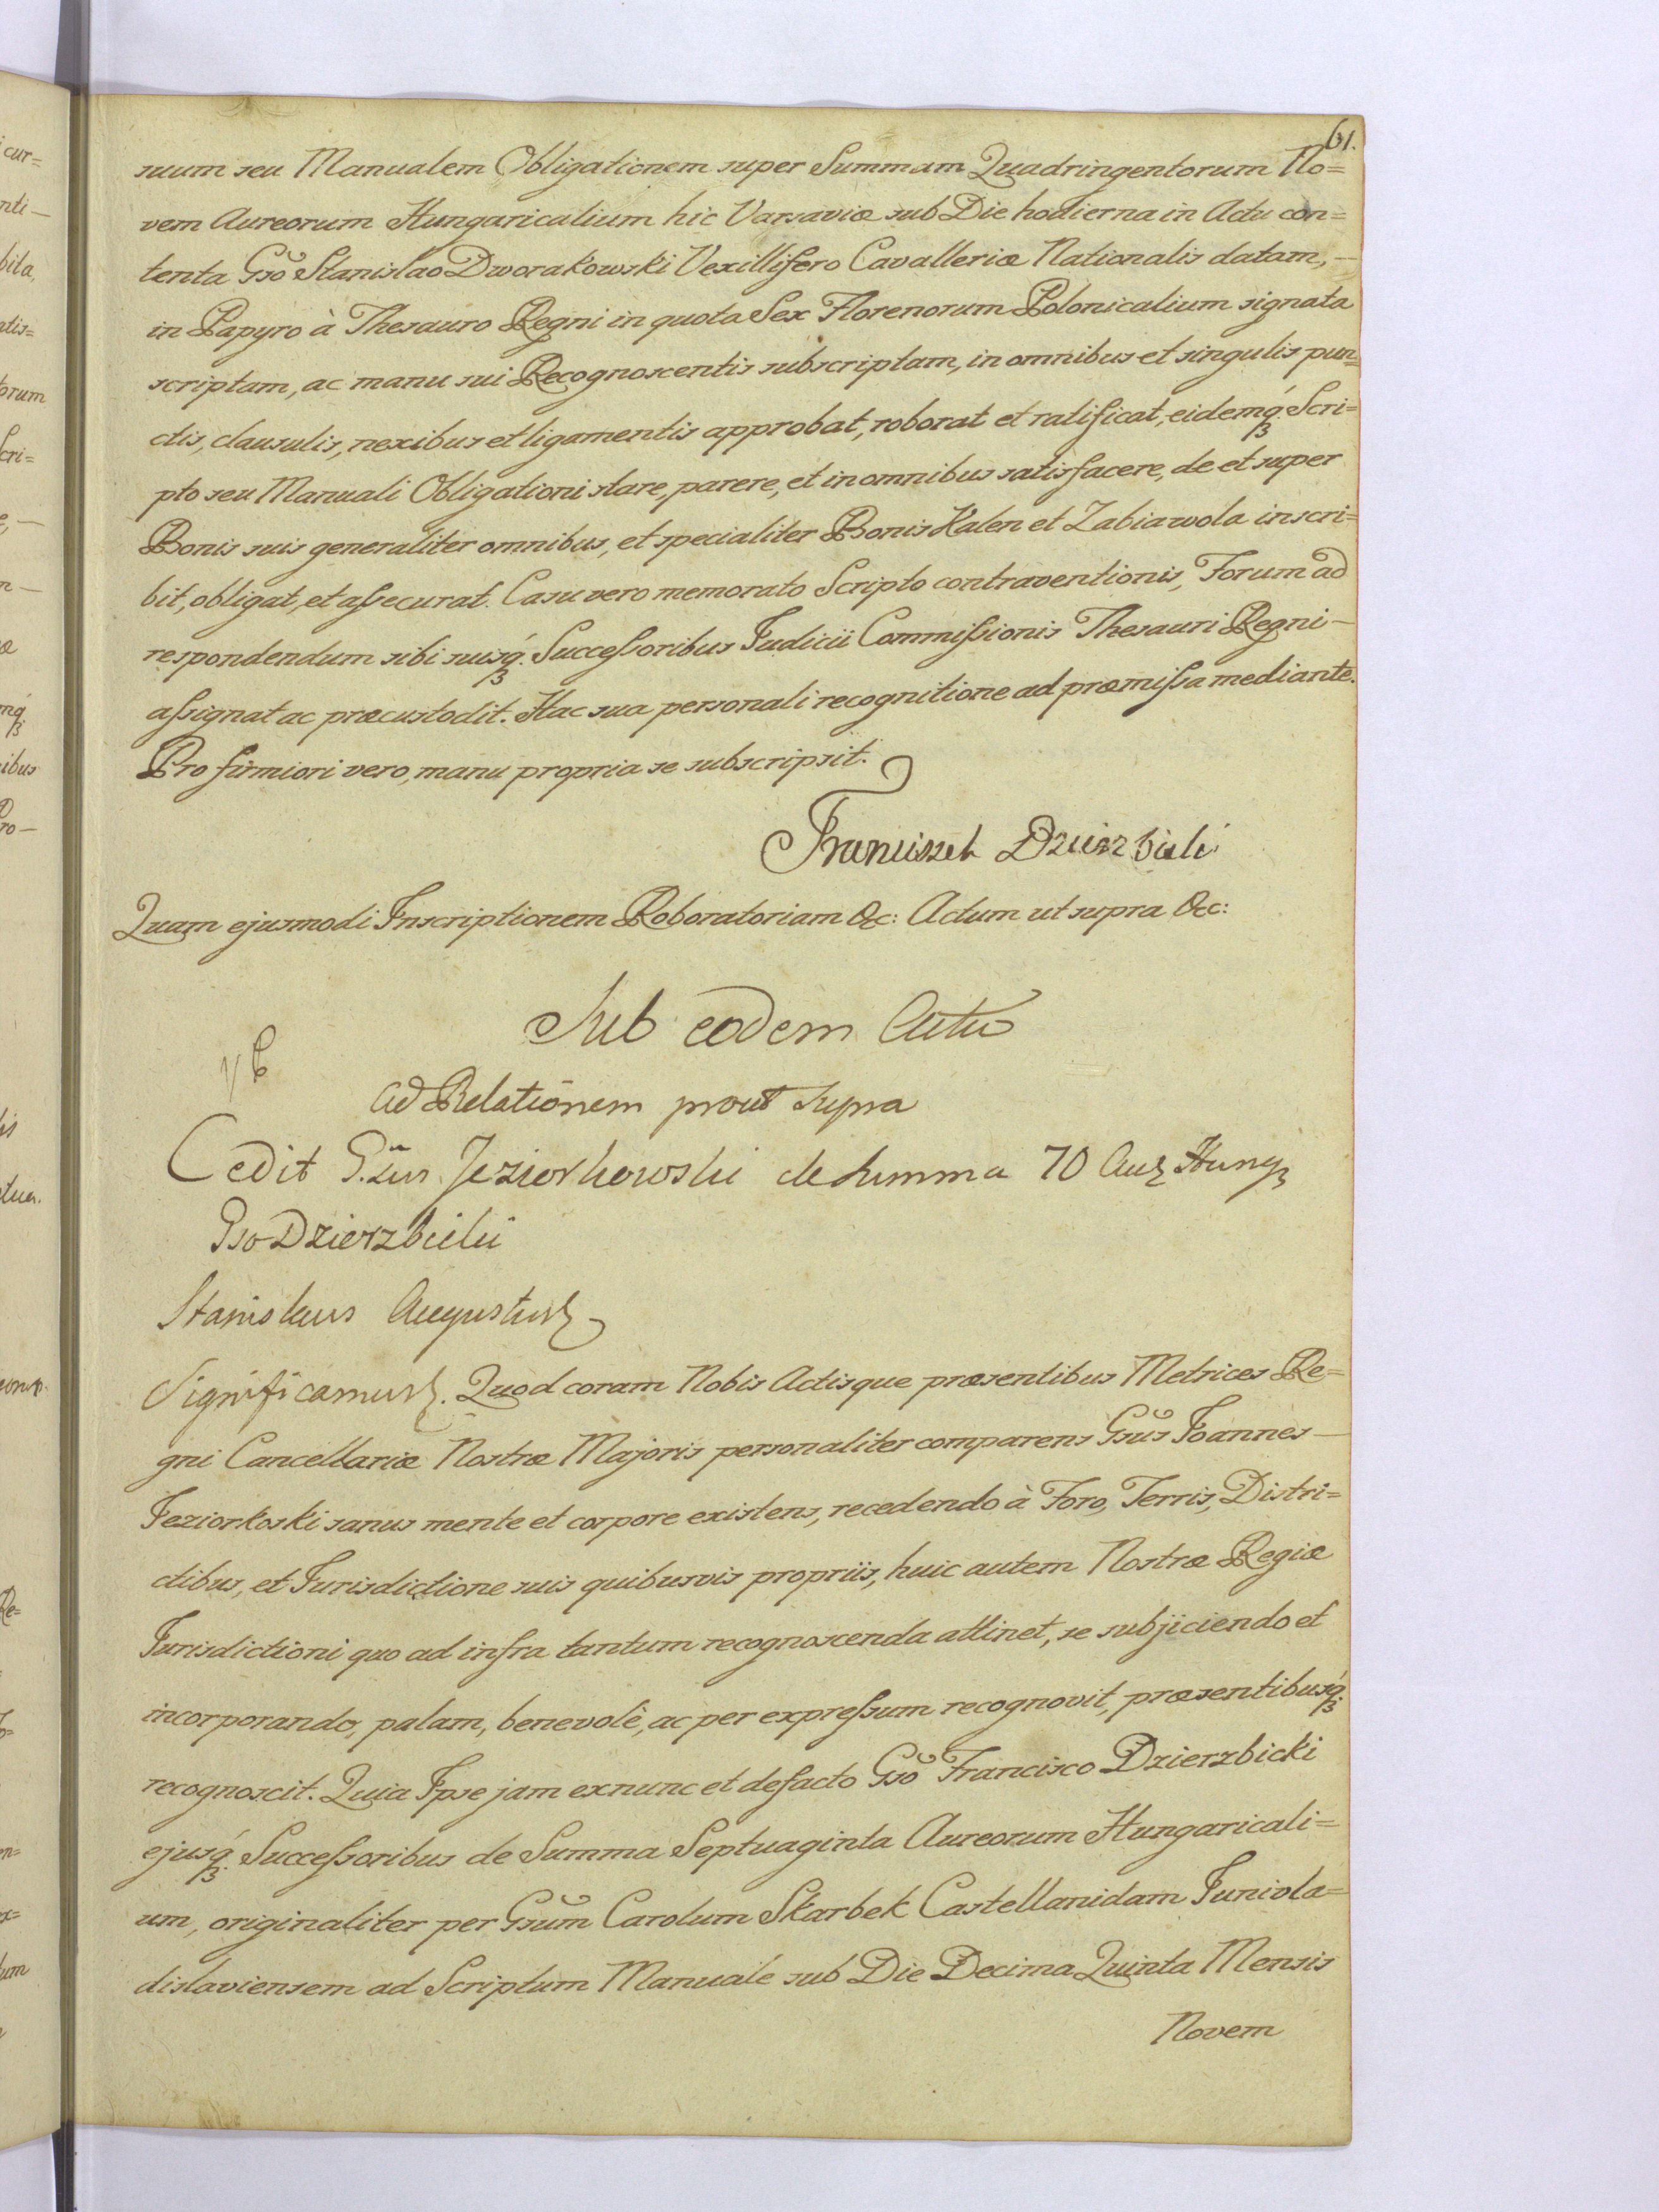 61.
suum seu Manualem Obligationem super Summam Quadringentorum No=
vem Aureorum Hungaricalium hic Varsaviæ sub Die hodierna in Actu con=
tenta Gsō Stanislao Dworakowski Vexillifero Cavalleriæ Nationalis datam, —
in Papyro à Thesauro Regni in quota Sex Florenorum Polonicalium signata
scriptam, ac manu sui Recognoscentis subscriptam, in omnibus et singulis pun=
ctis, clausulis, nexibus et ligamentis approbat, roborat et ratificat, eidemq́ꝫ Scri=
pto seu Manuali Obligationi stare, parere, et in omnibus satisfacere, de et super
Bonis suis generaliter omnibus, et specialiter Bonis Kalen et Zabiawola inscri=
bit, obligat, et aſsecurat. Casu vero memorato Scripto contraventionis, Forum ad
respondendum sibi suisq́ꝫ Succeſsoribus Judicii Commiſsionis Thesauri Regni —
aſsignat ac præcustodit. Hac sua personali recognitione ad præmiſsa mediante.
Pro firmiori vero, manu propria se subscripsit.
Franciszek Dzierzbicki
Quam ejusmodi Inscriptionem Roboratoriam &c: Actum ut supra &c:
Sub eodem Actu
ad Relationem prout supra
Cedit G.sus Jeziorkowski de summa 70 Aur Hung
Gso Dzierzbicki
Stanislaus Augustus
Significamus. Quod coram Nobis Actisque præsentibus Metrices Re=
gni Cancellariæ Nostræ Majoris personaliter comparens Gsūs Joannes —
Jeziorkoski sanus mente et corpore existens, recedendo à Foro, Terris, Distri=
ctibus, et Jurisdictione suis quibusvis propriis, huic autem Nostræ Regiæ
Jurisdictioni quo ad infra tantum recognoscenda attinet, se subjiciendo et
incorporando, palam, benevolè, ac per expreſsum recognovit, præsentibusq́ꝫ
recognoscit. Quia Ipse jam exnunc et defacto Gsō Francisco Dzierzbicki
ejusq́ꝫ Succeſsoribus de Summa Septuaginta Aureorum Hungaricali=
um, originaliter per Gsūm Carolum Skarbek Castellanidam Juniola=
dislaviensem ad Scriptum Manuale sub Die Decima Quinta Mensis
Novem